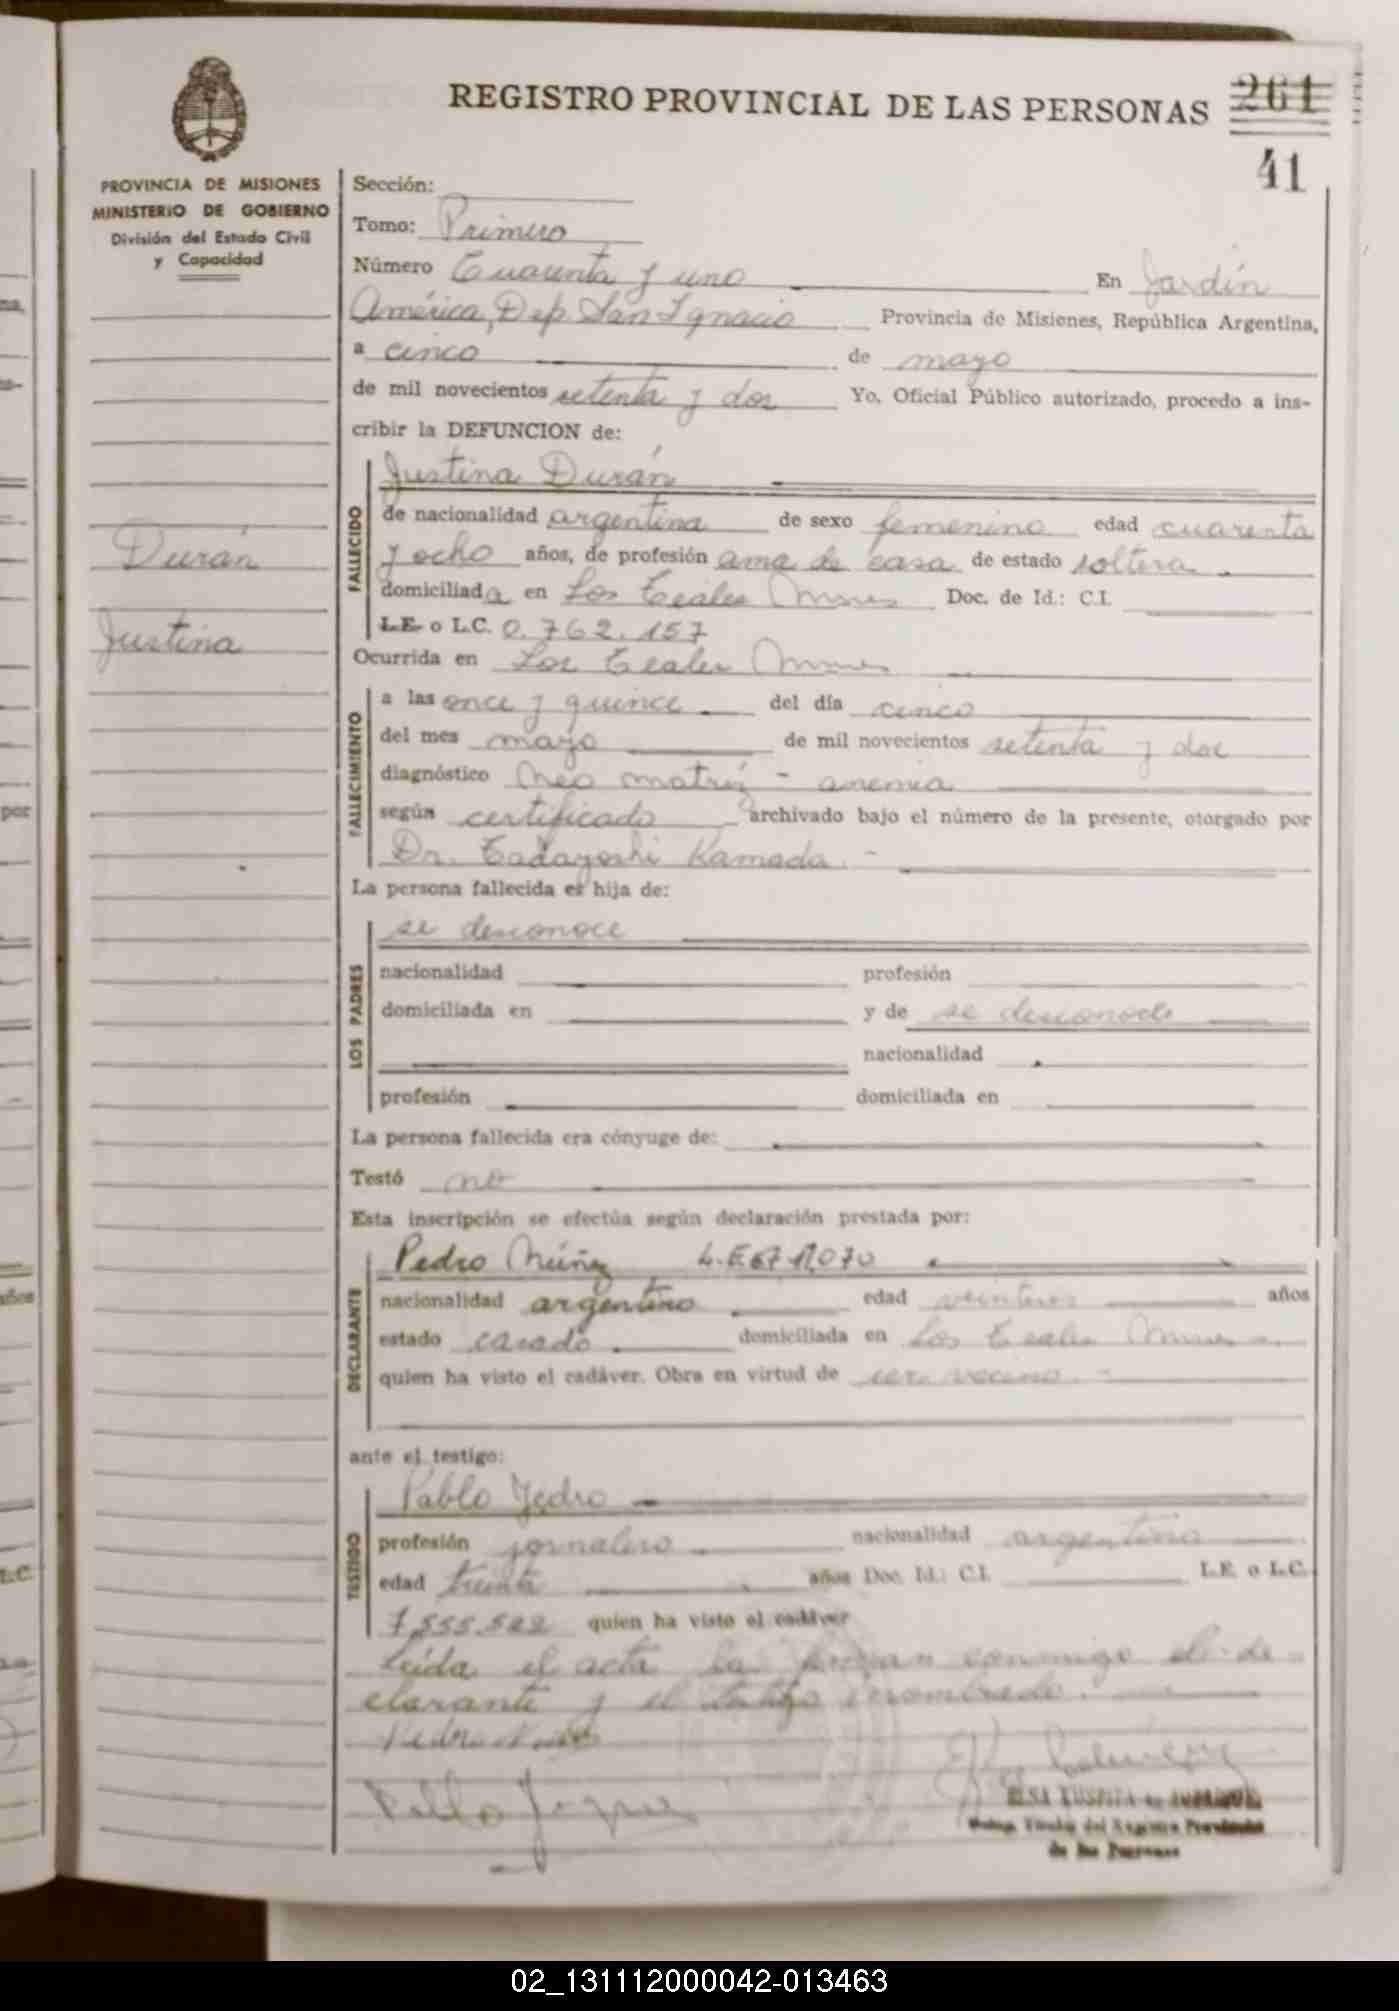 REGISTRO PROVINCIAL DE LAS PERSONAS
261
41
PROVINCIA DE MISIONES
MINISTERIO DE GOBIERNO
División del Estado Civil
y Capacidad
Durán
Justina
Sección:
Tomo: Primero
Número Cuarenta y uno En Jardín
América, Dep. San Ignacio Provincia de Misiones, República Argentina,
a cinco de mayo
de mil novecientos setenta y dos Yo, Oficial Público autorizado, procedo a ins-
cribir la DEFUNCION de:
FALLECIDO
Justina Durán
de nacionalidad argentina de sexo femenino edad cuarenta
y ocho años, de profesión ama de casa de estado soltera
domiciliada en Los Teales Mnes Doc. de Id.: C.I.
L.E. o L.C. 0.762.157
Ocurrida en Los Teales Mnes
FALLECIMIENTO
a las once y quince del día cinco
del mes mayo de mil novecientos setenta y dos
diagnóstico Neo matríz - anemia
según certificado archivado bajo el número de la presente, otorgado por
Dr. Tadayoshi Kamada.-
La persona fallecida es hija de:
LOS PADRES
se desconoce
nacionalidad profesión
domiciliada en y de se desconoce
nacionalidad
profesión domiciliada en
La persona fallecida era cónyuge de:
Testó no
Esta inscripción se efectúa según declaración prestada por:
DECLARANTE
Pedro Núñez L.E.
nacionalidad argentino edad años
estado casado domiciliada en Los Teales Mnes
quien ha visto el cadáver. Obra en virtud de ser vecino.-
ante el testigo:
TESTIGO
Pablo
profesión jornalero nacionalidad argentino
edad treinta años Doc. Id.: C.I. L.E. o L.C.
7.555.522 quien ha visto el cadáver
Leida el acta la firman conmigo el de-
clarante y el testigo nombrado.
Pedro
Pablo
Titular del Registro Provincial
de las Personas
02_131112000042-013463